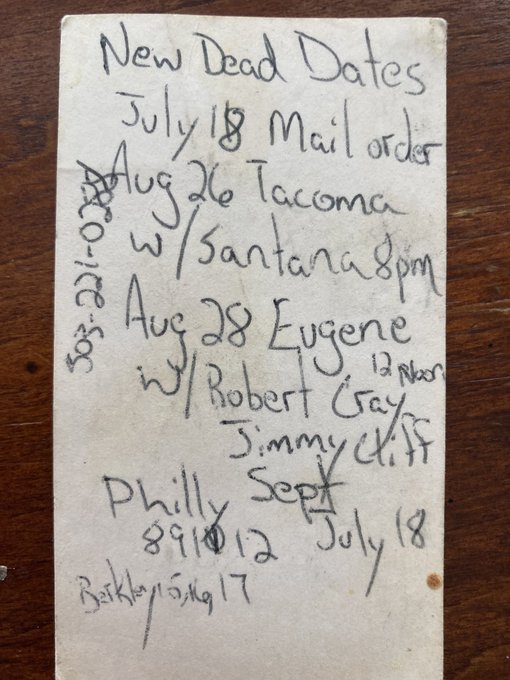 New Dead Dates
July 18 Mail order
Aug 26 Tacoma
w/Santana 8pm
Aug 28 Eugene
12 Noon
w/Robert Cray
Jimmy Cliff
Philly Sept
8 9 11 12 July 18
Berkley 15, 16, 17
503-221-02